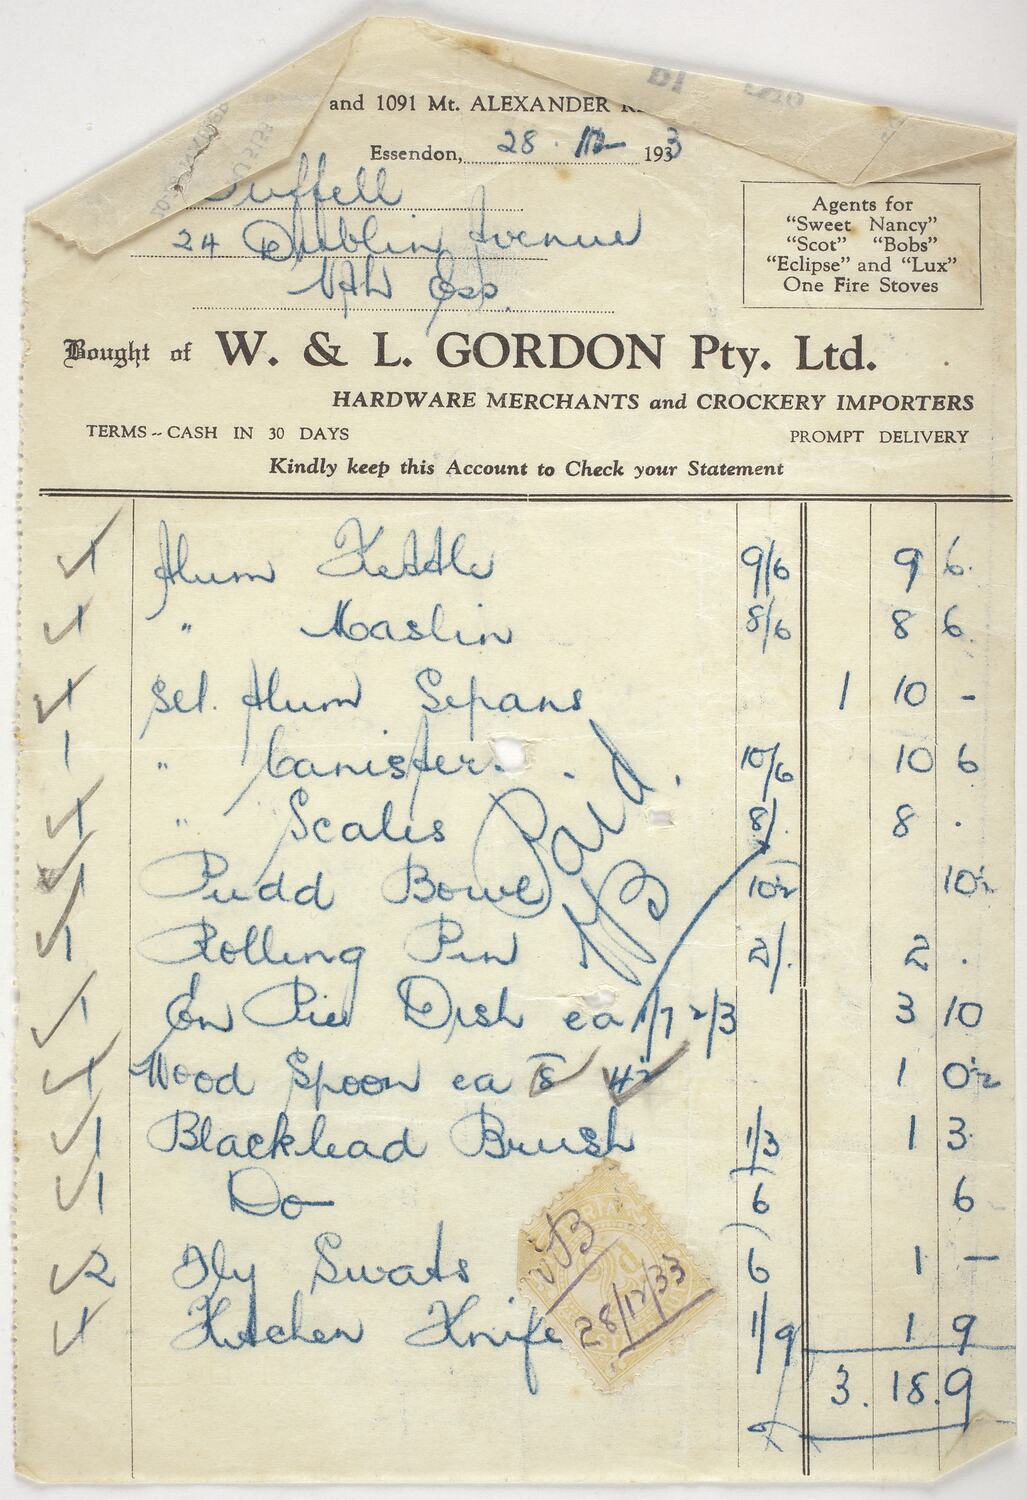 and 1091 Mt. ALEXANDER
Essendon, 28 . 12 1933
Duffell
24 Dublin Avenue
Nth Ess.
Agents for
"Sweet Nancy"
"Scot" "Bobs"
"Eclipse" and "Lux"
One Fire Stoves
Bought of W. & L. GORDON Pty. Ltd.
HARDWARE MERCHANTS and CROCKERY IMPORTERS
TERMS -- CASH IN 30 DAYS PROMPT DELIVERY
Kindly keep this Account to Check your Statement
1 Alum Kettle 9/6 9 6.
1 " Maslin 8/6 8 6.
1 set. Alum Sepans 1 10 -
1 " Canister. 10/6 10 6
1 " Scales 8/. 8 .
1 Pudd Bowl 10½ 10½
1 Rolling Pin 2/. 2 .
1 En Pie Dish ea 1/7 2/3 3 10
1 Wood Spoon ea 8 4½ 1 0½
1 Blacklead Brush 1/3 1 3.
1 Do 6 6
2 Fly Swats 6 1 -
1 Kitchen Knife 1/9 1 9
3. 18. 9
Paid.
28/12/33